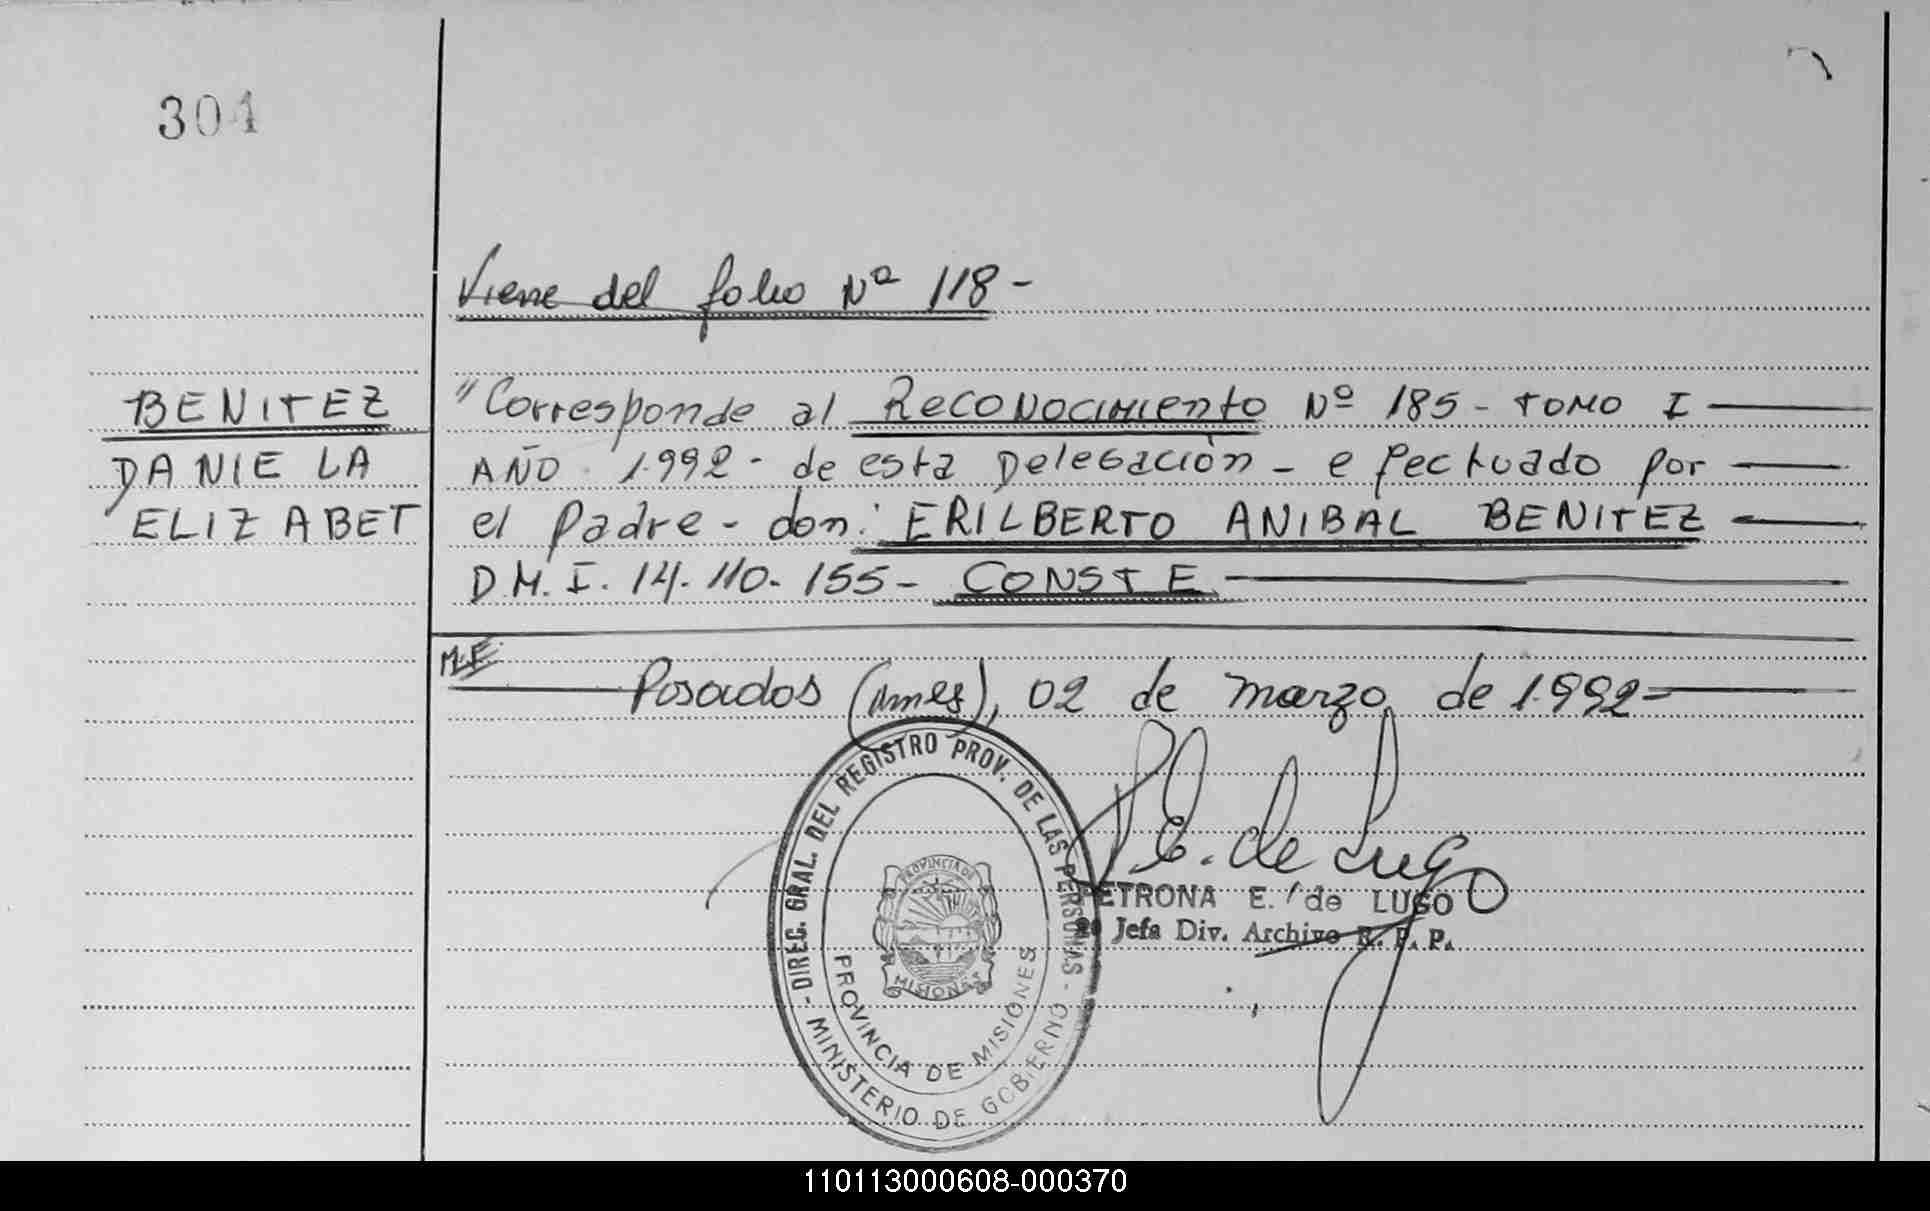 304
Viene del folio Nº 118-
BENITEZ
DANIELA
ELIZABET
"Corresponde al Reconocimiento Nº 185 - TOMO I
AÑO 1.992 - de esta Delegación - efectuado por
el padre - don: ERILBERTO ANIBAL BENITEZ
D.M.I. 14.110.155 - CONSTE
M.E
Posadas (Mnes), 02 de marzo de 1.992=
- DIREC. GRAL. DEL REGISTRO PROV. DE LAS PERSONAS -
MINISTERIO DE GOBIERNO
PROVINCIA DE
MISIONES
PROVINCIA DE MISIONES
P.E. de Lugo
PETRONA E. de LUGO
Jefa Div. Archivo R. P. P.
110113000608-000370